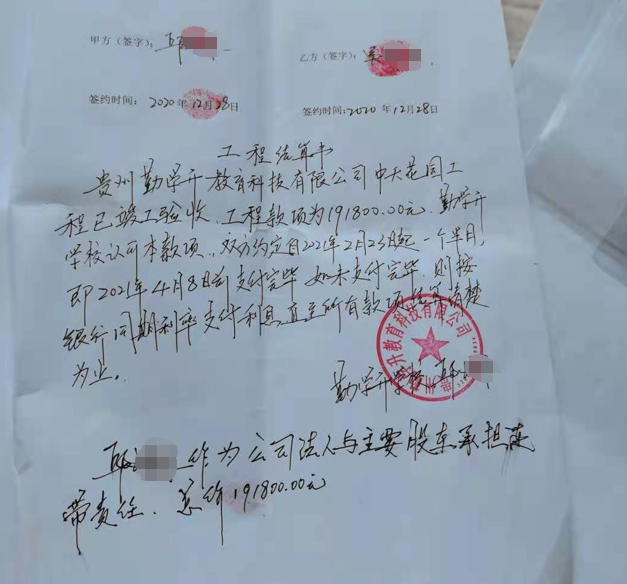 甲方（签字）：
乙方（签字）：
签约时间： 2020年12月28日
签约时间：2020年12月28日
工程结算书
贵州勤学升教育科技有限公司中天花园工
程已竣工验收，工程款项为191800.00元，勤学升
学校认可本款项，双方约定自2021年2月23日起一个半月，
即2021年4月8日前支付完毕 如未支付完毕，则按
银行同期利率支付利息直至所有款项结算清楚
为止。
勤学升学校
升教育科技有限公司
作为公司法人与主要股东承担连
带责任．总价191800.00元